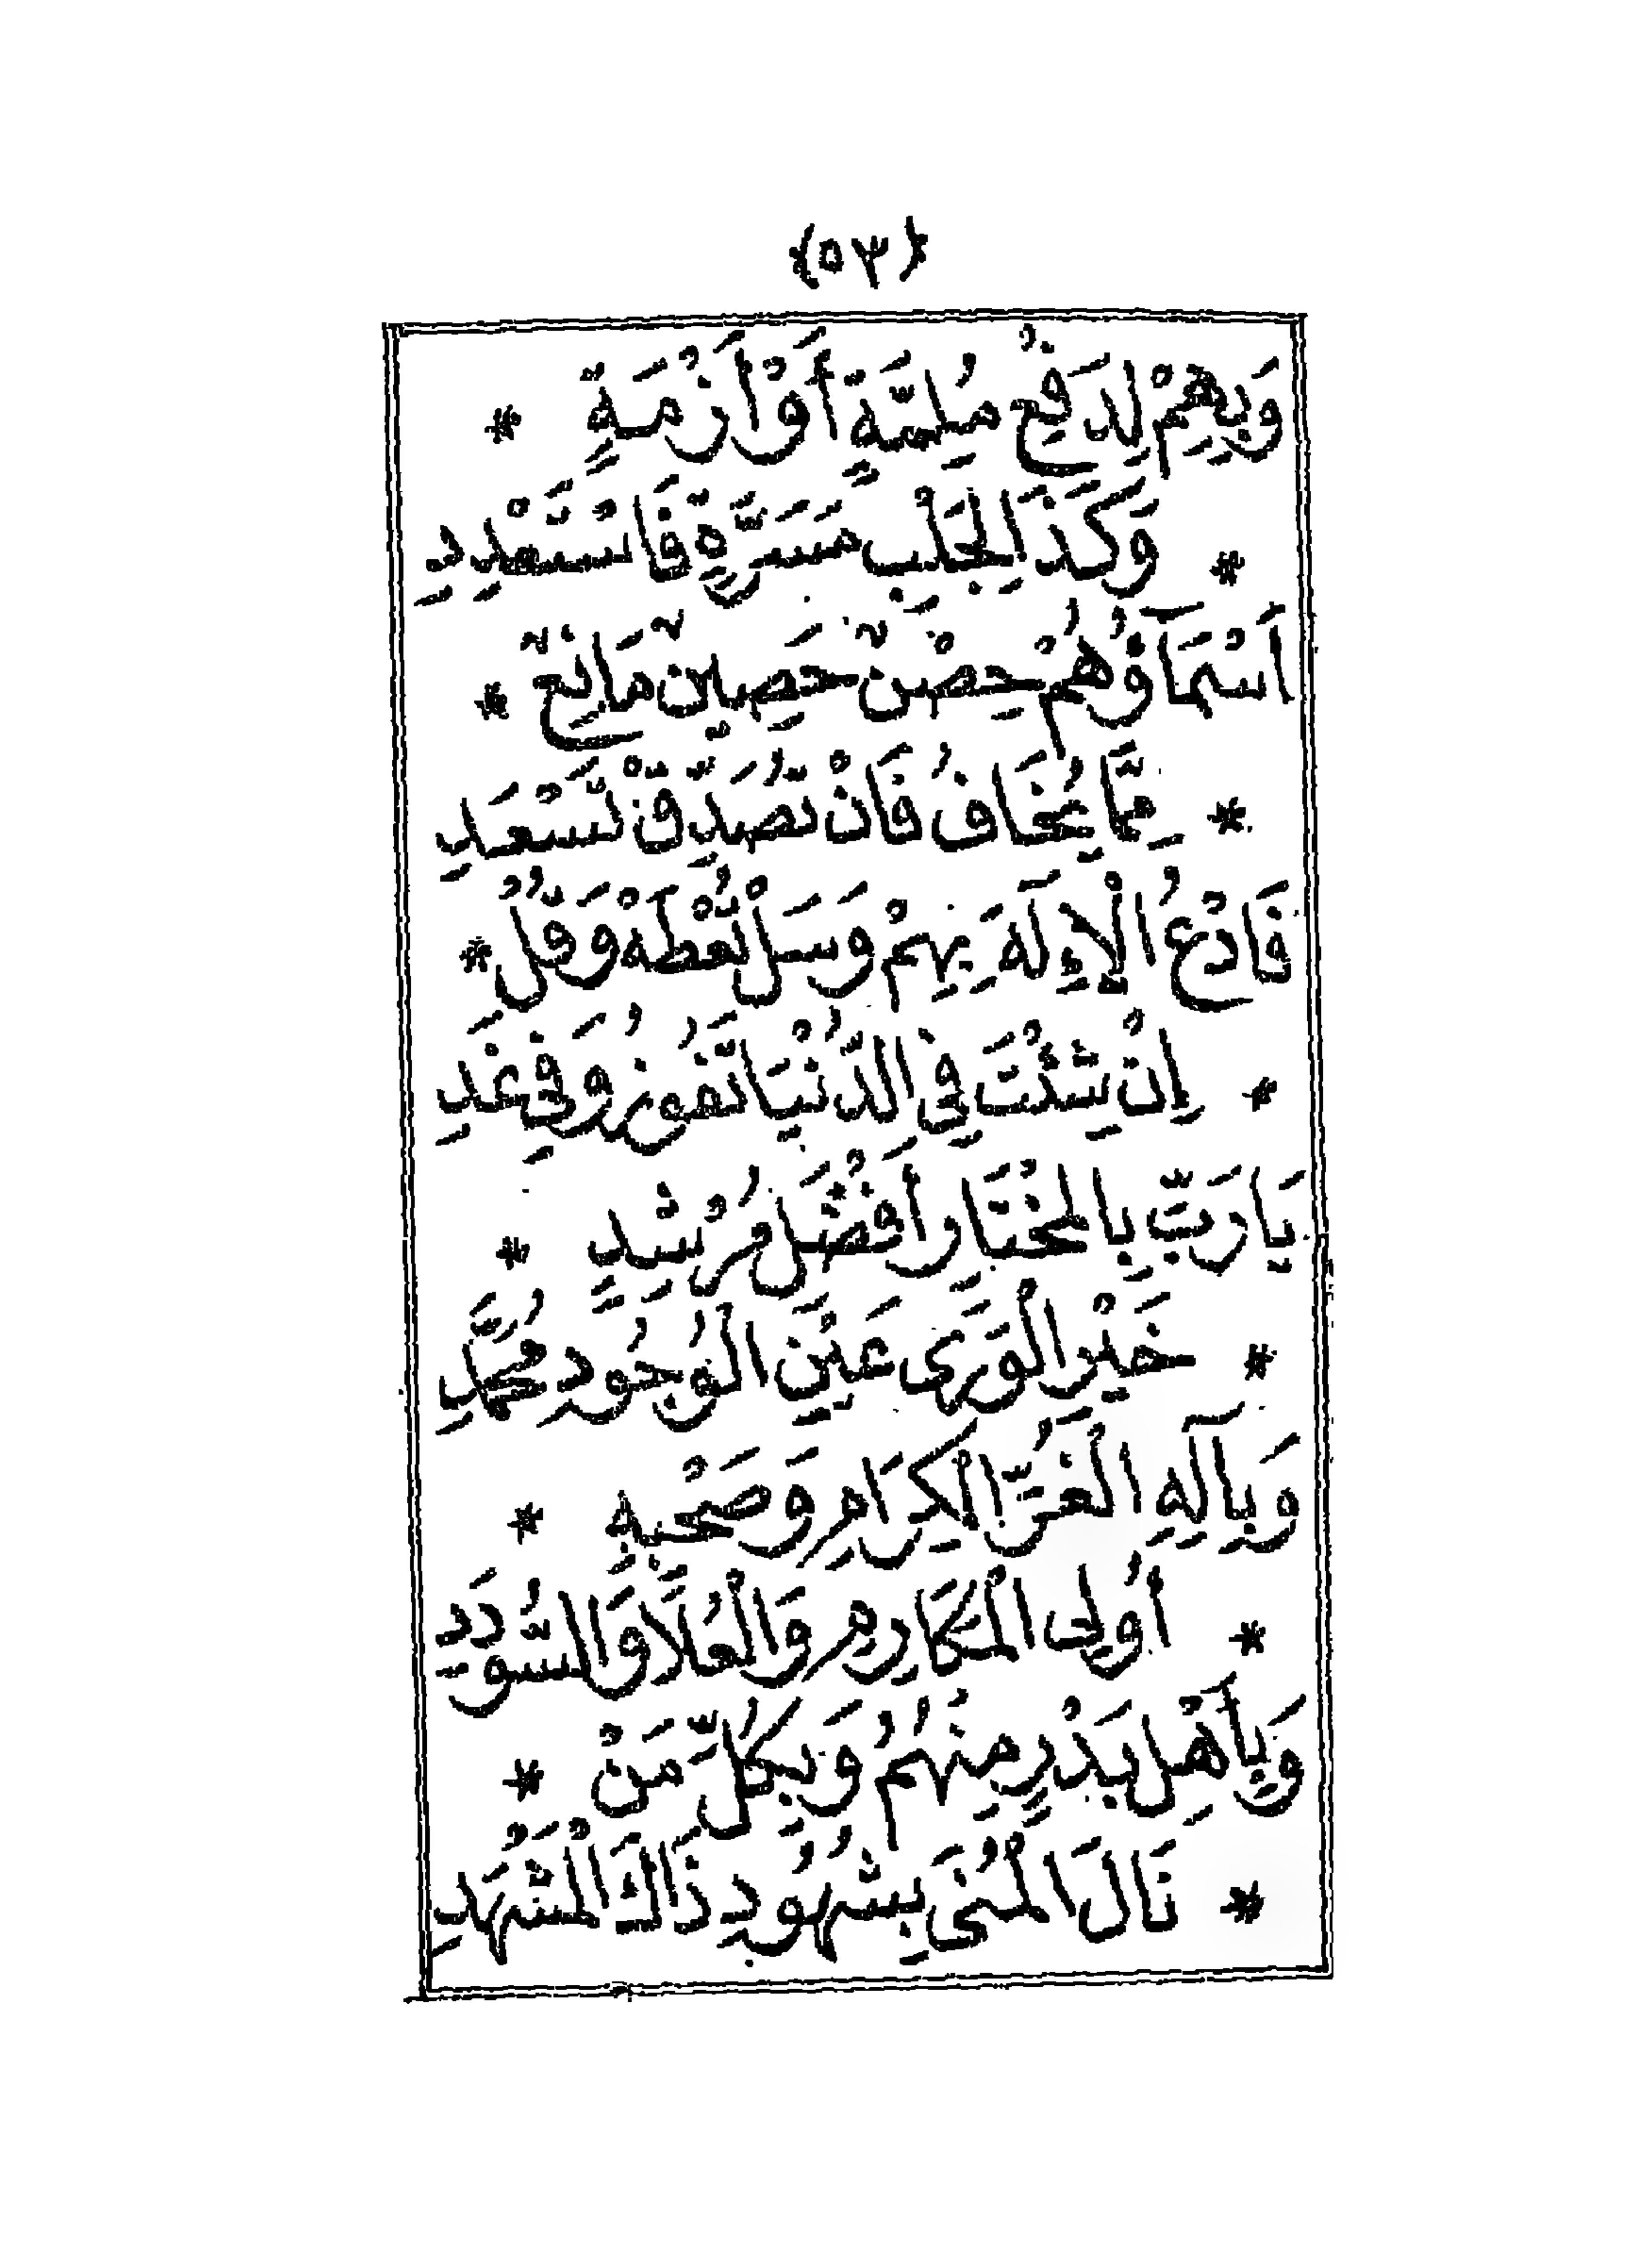 ﴿٥٣﴾
وَبِهِمْ لِدَفْعِ مُلِمَّةٍ أَوْ أَزْمَةٍ *
* وَكَذَا لِجَلْبِ مَسَرَّةٍ فَاسْتَنْجِدِ
اَسْمَآؤُهُمْ حِصْنٌ حَصِينٌ مَانِعٌ *
* مِمَّا يُخَافُ فَاَنْ تُصَدِّقْ تَسْعَدِ
فَادْعُ الْاِلٰهَ بِهِمْ وَسَلْ تُعْطَهْ وَقُلْ *
* اِنْ شِئْتَ فِي الدُّنْيَا تَفُوزُ وَفِي غَدِ
يَارَبِّ بِالْمُخْتَارِ أَفْضَلِ مُرْشِدٍ *
* خَيْرِ الْوَرَى عَيْنِ الْوُجُودِ مُحَمَّدِ
وَبِآلِهِ الْغُرِّ الْكِرَامِ وَصَحْبِهِ *
* أُولِى الْمَكَارِمِ وَالْعُلَا وَالسُّوَدَدِ
وَبِأَهْلِ بَدْرٍ مِنْهُمُ وَبِكُلِّ مَنْ *
* نَالَ الْمُنَى بِشُهُودِ ذَاكَ الْمَشْهَدِ